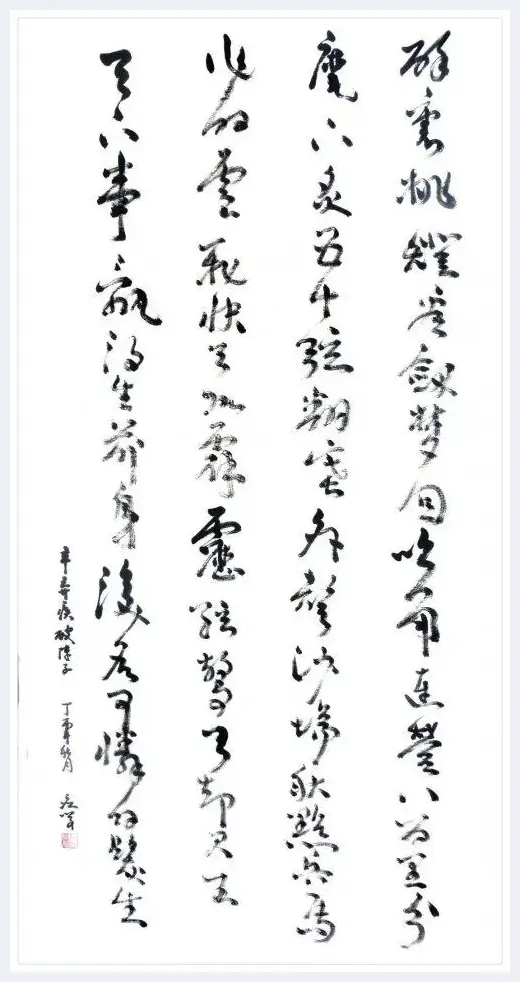 醉裏挑燈看劍夢回吹角連營八百里分
麾下炙五十弦翻塞外聲沙場秋點兵馬
作的盧飛快弓如霹靂弦驚了却君王
天下事贏得生前身後名可憐白髮生
辛弃疾破陣子 丁酉秋月